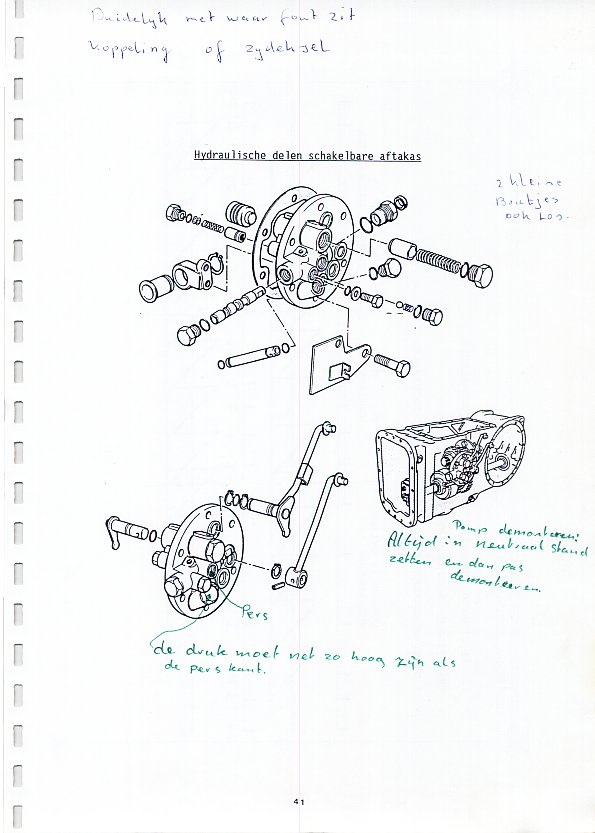 Duidelyk met waar fout zit
Koppeling of zydeksel
Hydraulische delen schakelbare aftakas
2 kleine
Boutjes
ook Los.
Pomp demonteren:
Altijd in neutraal stand
zetten en dan pas
demonteeren
Pers
de druk moet net zo hoog zijn als
de pers kant.
41